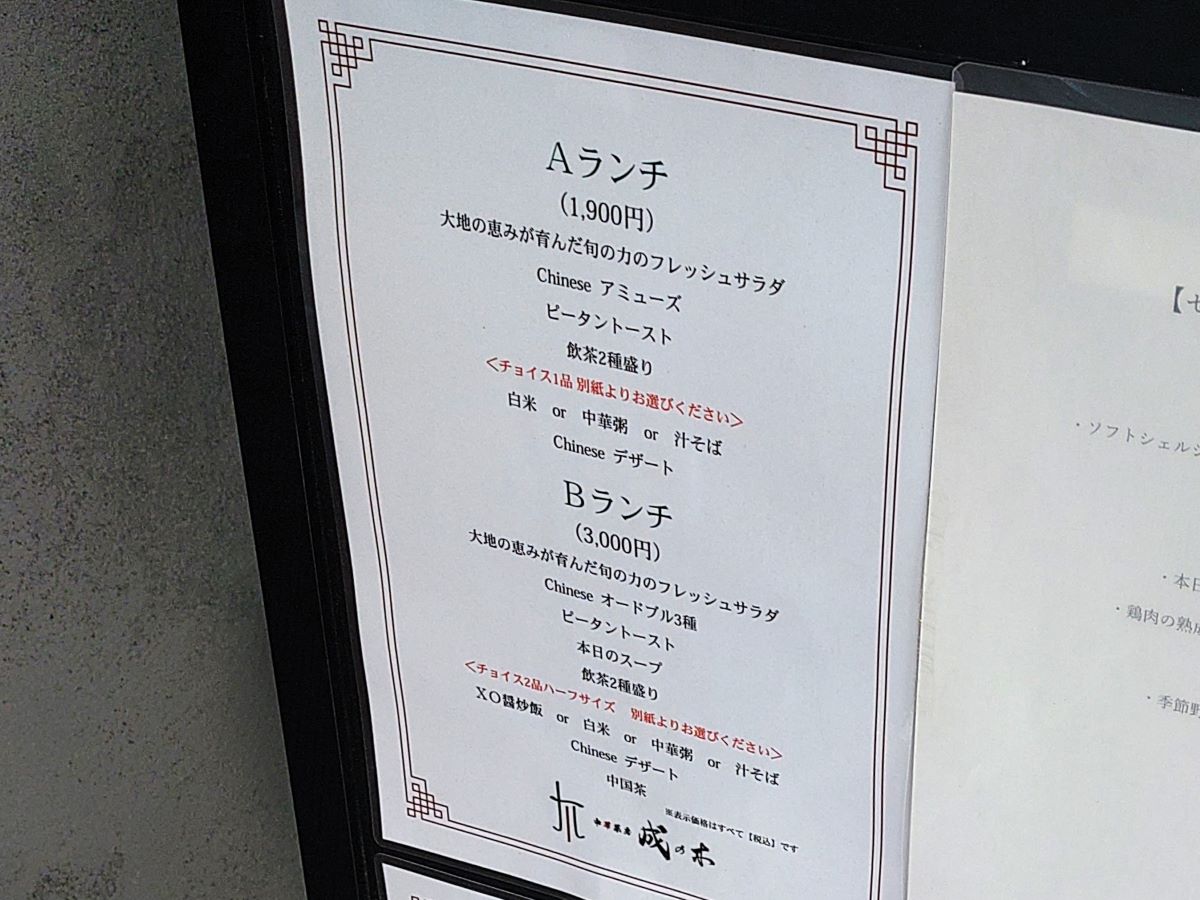 Aランチ
(1,900円)
大地の恵みが育んだ旬の力のフレッシュサラダ
Chinese アミューズ
ピータントースト
飲茶2種盛り
<チョイス1品 別紙よりお選びください>
白米 or 中華粥 or 汁そば
Chinese デザート
Bランチ
(3,000円)
大地の恵みが育んだ旬の力のフレッシュサラダ
Chinese オードブル3種
ピータントースト
本日のスープ
飲茶2種盛り
<チョイス2品ハーフサイズ 別紙よりお選びください>
XO醤炒飯 or 白米 or 中華粥 or 汁そば
Chinese デザート
中国茶
※表示価格はすべて【税込】です
成の木
【セ
・ソフトシェルシ
・本日
・鶏肉の熟成
・季節野